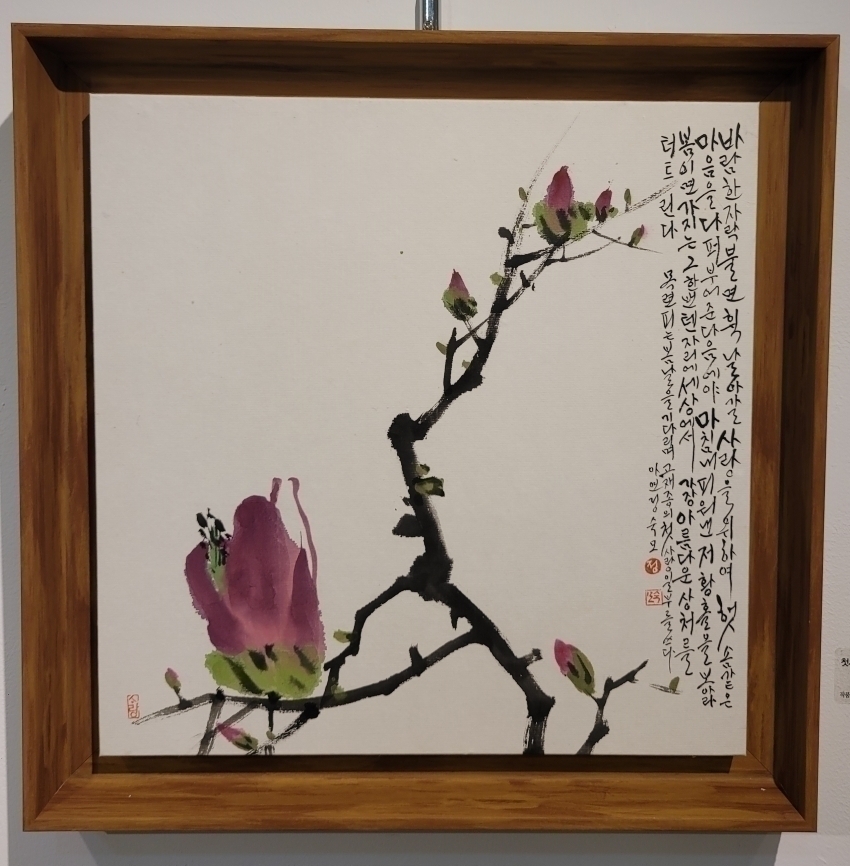 바람 한 자락 불면 휙 날아갈 사랑을 위하여 햇솜같은
마음을 다 퍼부어 준 다음에야 마침내 피워낸 저 황홀을 보아라
봄이면 가지는 그 한번 덴 자리에 세상에서 가장 아름다운 상처를
터트린다 목련피는 봄날을 기다리며 고재종의 첫사랑 일부를 쓰다
숙모
정
첫